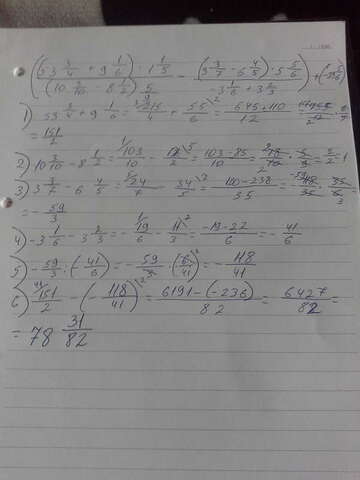 ((53 3/4 + 9 1/6) · 1 1/5) / ((10 3/10 - 8 1/2) · 5/9) - ((3 3/7 - 6 4/5) · 5 5/6) / (-3 1/6 + 3 2/3)
1) 53 3/4 + 9 1/6 = 215/4 + 55/6 = 645+110/12 =
= 151/2
2) 10 3/10 - 8 1/2 = 103/10 - 17/2 = 103-85/10 = 18/10 · 5/9 =
3) 3 3/7 - 6 4/5 = 24/7 - 34/5 = 120-238/35 = · 35/6
= -59/3
4) -3 1/6 - 3 2/3 = 19/6 - 11/3 = -19-22/6 = -41/6
5) -59/3 : (-41/6) = -59/3 · (6/41) = -118/41
6) 151/2 - (-118/41) = 6191-(-236)/82 = 6427/82 =
= 78 31/82